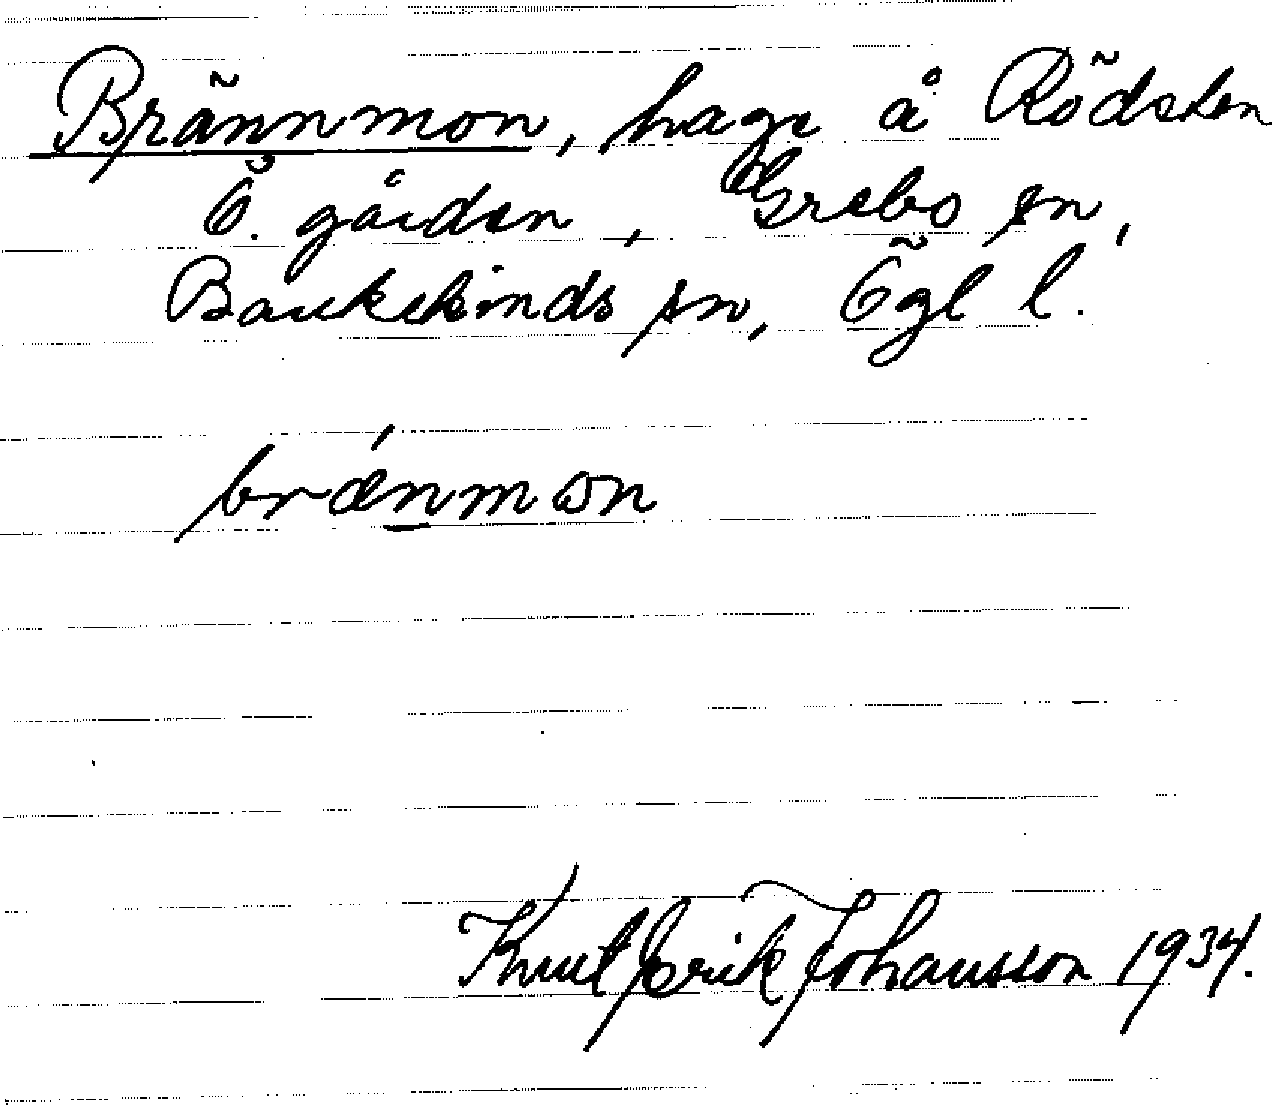 Brännmon, hage å Rödsten
Ö. gården, Grebo sn,
Bankekinds sn, Ögl l.
brǽnmωn
Knut Erik Johansson 1934.